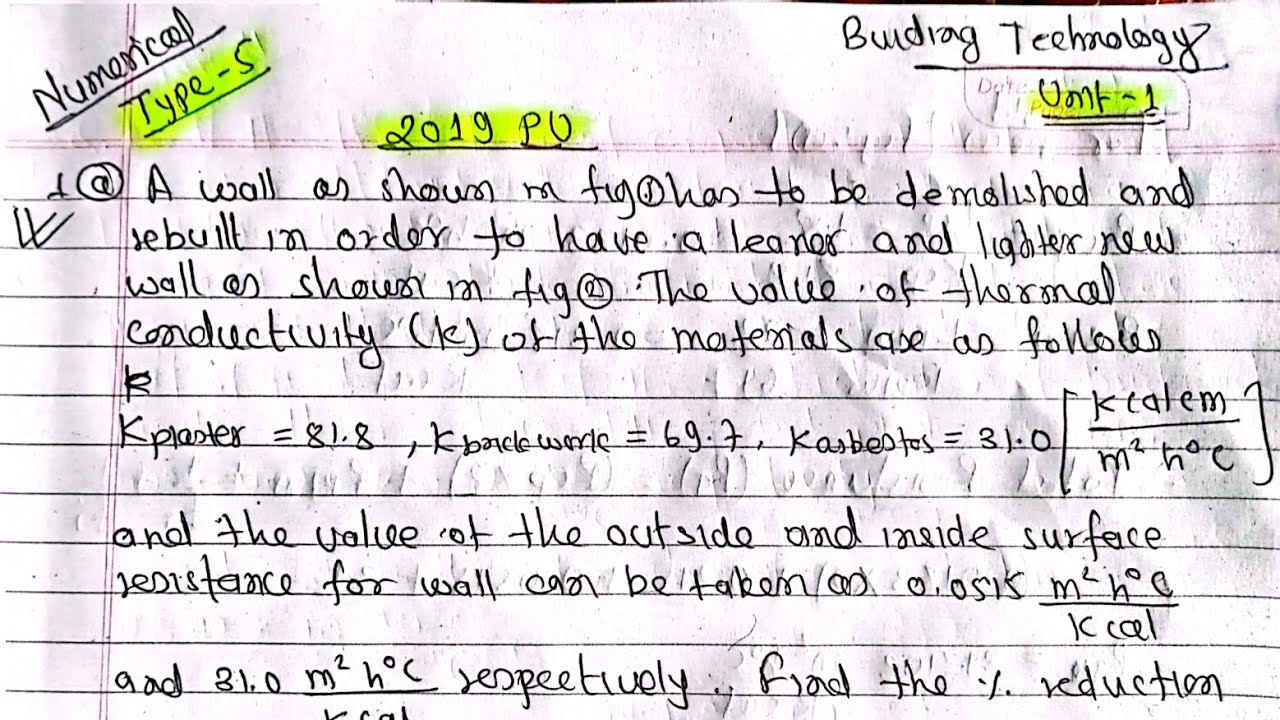 Numerical
Type-5
Building Technology
Unit-1
2019 PU
1 (a) A wall as shown in fig ① has to be demolished and
rebuilt in order to have a leaner and lighter new
wall as shown in fig ②. The value of thermal
conductivity (k) of the materials are as follows
K plaster = 81.8, K brick work = 69.7, K asbestos = 31.0 [Kcal cm / m² h°C]
and the value of the outside and inside surface
resistance for wall can be taken as 0.0515 m² h°C / Kcal
and 31.0 m² h°C / kcal respectively., Find the % reduction